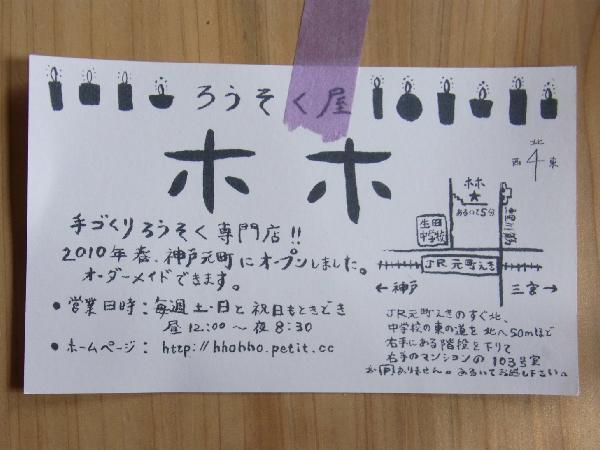 ろうそく屋
ホホ
手づくりろうそく専門店!!
2010年春、神戸元町にオープンしました。
オーダーメイドできます。
• 営業日時：毎週土・日と祝日もときどき
昼12:00〜夜8:30
• ホームページ：http://hhohho.petit.cc
北
西
東
ホホ
あるいて5分
生田
中学校
JR元町えき
←神戸
三宮→
JR元町えきのすぐ北、
中学校の東の道を北へ50mほど
右手にある階段を下りて
右手のマンションの103号室
Ⓟありません。あるいてお越し下さい。